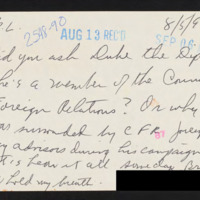 L. 8/5/9
2598-90 AUG 13 REC'D
SEP
id you ask Duke the Dip
he's a member of the Coun
Foreign Relations? Or why
was surrounded by CFR, foreig
y advisors during his campaign
it is hear it all someday. Don
hold my breath.